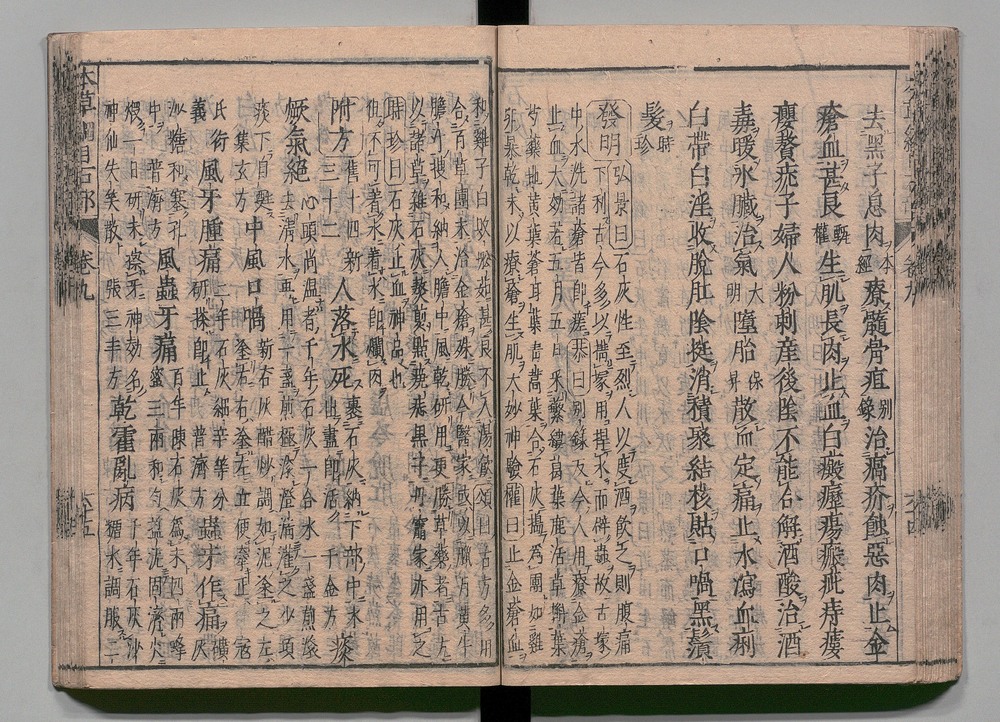 去黑子息肉本經療髓骨疽別錄治瘑疥蝕惡肉止金
瘡血甚良甄權生肌長肉止血白癜癧瘍瘢疵痔瘻
癭贅疣子婦人粉刺產後陰不能合解酒酸治酒
毒暖水臟治氣大明墮胎保昇散血定痛止水瀉血痢
白帶白淫收脫肛陰挺消積聚結核貼口喎黑鬚
髮時珍
發明弘景曰石灰性至烈人以度酒飲之則腹痛
下利古今多以搆冢用捍水而辟蟲故古塚
中水洗諸瘡皆即瘥恭曰別錄及今人用療金瘡
止血大効若五月五日采蘩縷葛葉鹿活草槲葉
芍藥地黃葉蒼耳葉青蒿葉合石灰擣為團如雞
卵暴乾末以療瘡生肌大妙神驗權曰止金瘡血
和雞子白敗船茹甚良不入湯飲頌曰古方多用
合百草團末治金瘡殊勝今醫家或以臘月黃牛
膽汁搜和納入膽中風乾研用更勝草藥者古方
以諸草雜石灰熬煎點疣痣黑子丹竈家亦用之
時珍曰石灰止血神品也
但不可着水着水即爛肉
附方舊十四新三十二人落水死裹石灰納下部中水出盡即活千金方痰
厥氣絕心頭尚溫者千年石灰一合水一盞煎滾
去清水再用一盞煎極滾澄清灌之少頃
痰下自甦集玄方中風口喎新石灰醋炒調如泥塗之左塗右右塗左立便牽正寇
氏衍義風牙腫痛二年石灰細辛等分研搽即止普濟方蟲牙作痛礦灰
沙糖和塞孔中普濟方風蟲牙痛百年陳石灰為末四兩蜂蜜三兩和匀鹽泥固濟火
煅一日研末擦牙神効名神仙失笑散張三丰方乾霍亂病千年石灰沙糖水調服二
本草綱目石部 卷九